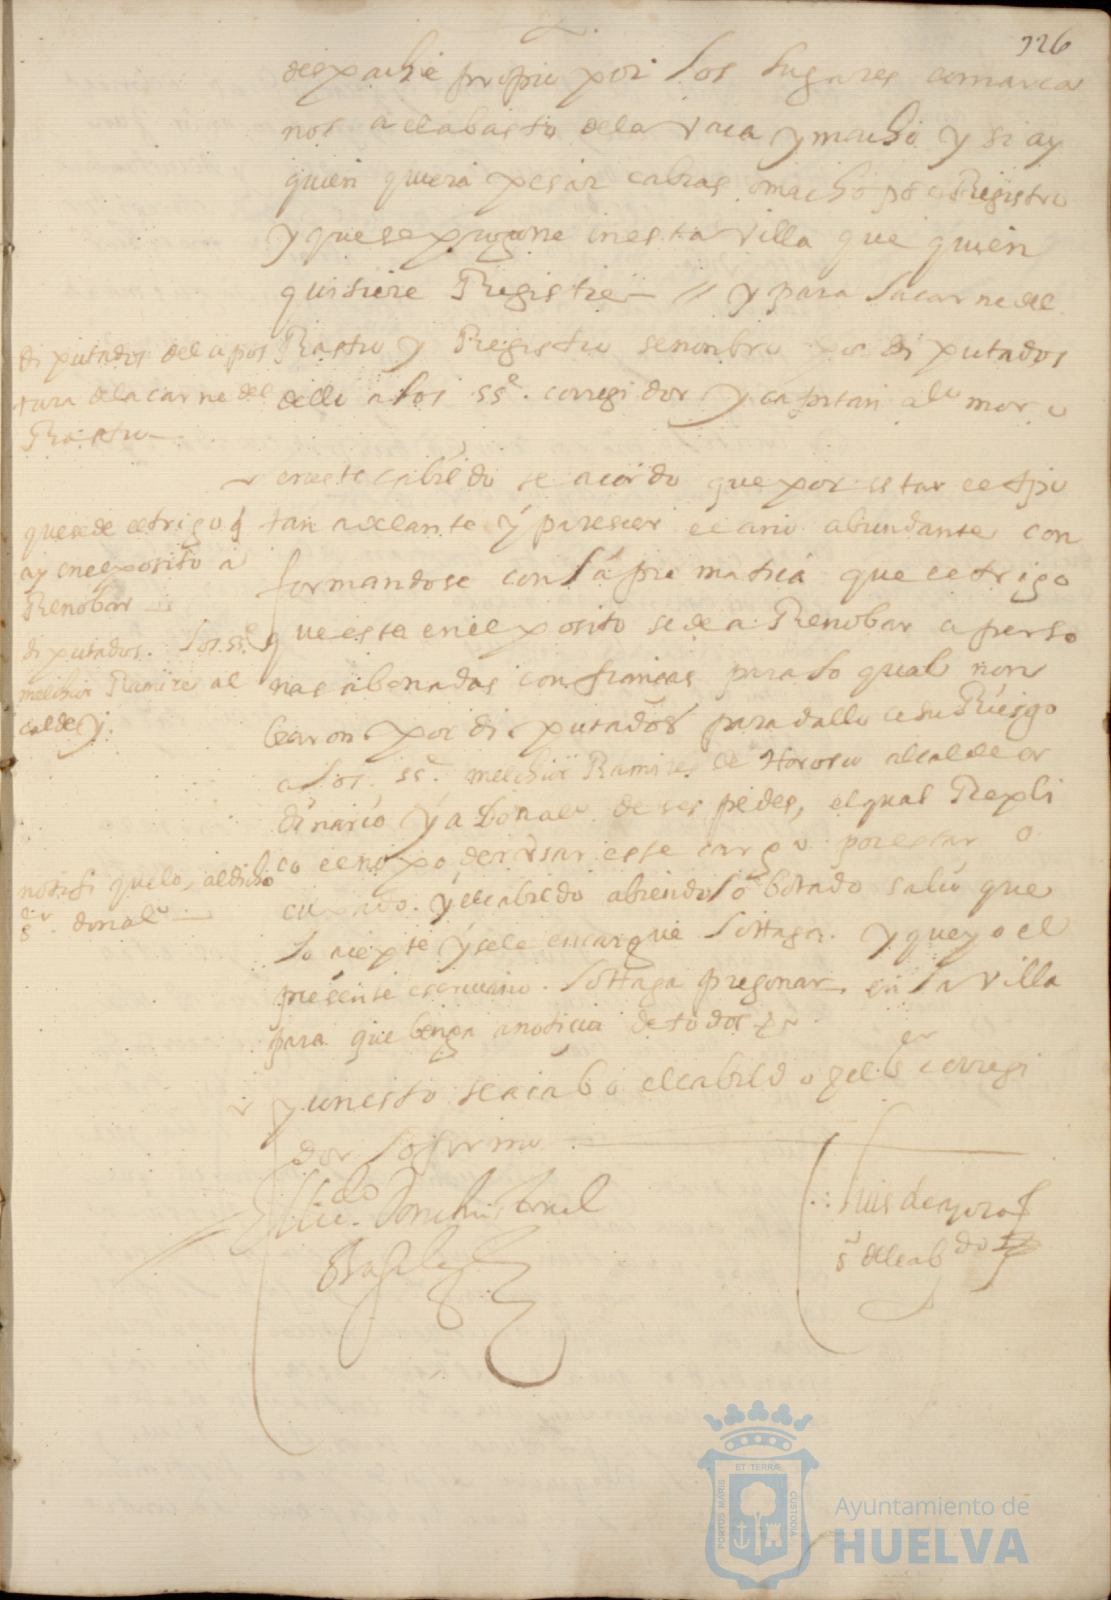 326
despache propio por los lugares comarca
nos a el abasto de la vaca y macho y si ay
quien quiera pesar cabras o macho Registro
y que se pregone en esta villa que quien
quisiere Registre // y para la carne del
Rastro y Registro se nonbro por diputados
dello a los ss.e corregidor y capitan al.o moro
diputados de la pos
tura de la carne del
Rastro
en este cabildo se acordo que por estar el tpo
tan adelante y parescer el año abundante con
formandose con la prematica que el trigo
que esta en el posito se de a Renobar a perso
nas abonadas con fianças para lo qual non
braron por diputados para dallo a su Riesgo
a los ss.e melchior Ramires de Horosco alcalde or
dinario y a don al.o de sespedes, el qual Repli
co el no poder usar este cargo por estar o
cupado y el cabildo abiendolo botado salio que
lo acepte y se le encargue lo haga y que yo el
presente escrivano lo haga pregonar en la villa
para que benga a noticia de todos
que se de el trigo q
ay en el posito a
Renobar
diputados. los ss.e
melchior Ramires al
calde y.
notifiquelo, al dicho
s.r don al.o
y con esto se acabo el cabildo y el s.er corregi
dor lo firmo
El lic.do Don
luis de
s.o del cab.do
PORTUS MARIS
ET TERRÆ
CUSTODIA
Ayuntamiento de
HUELVA